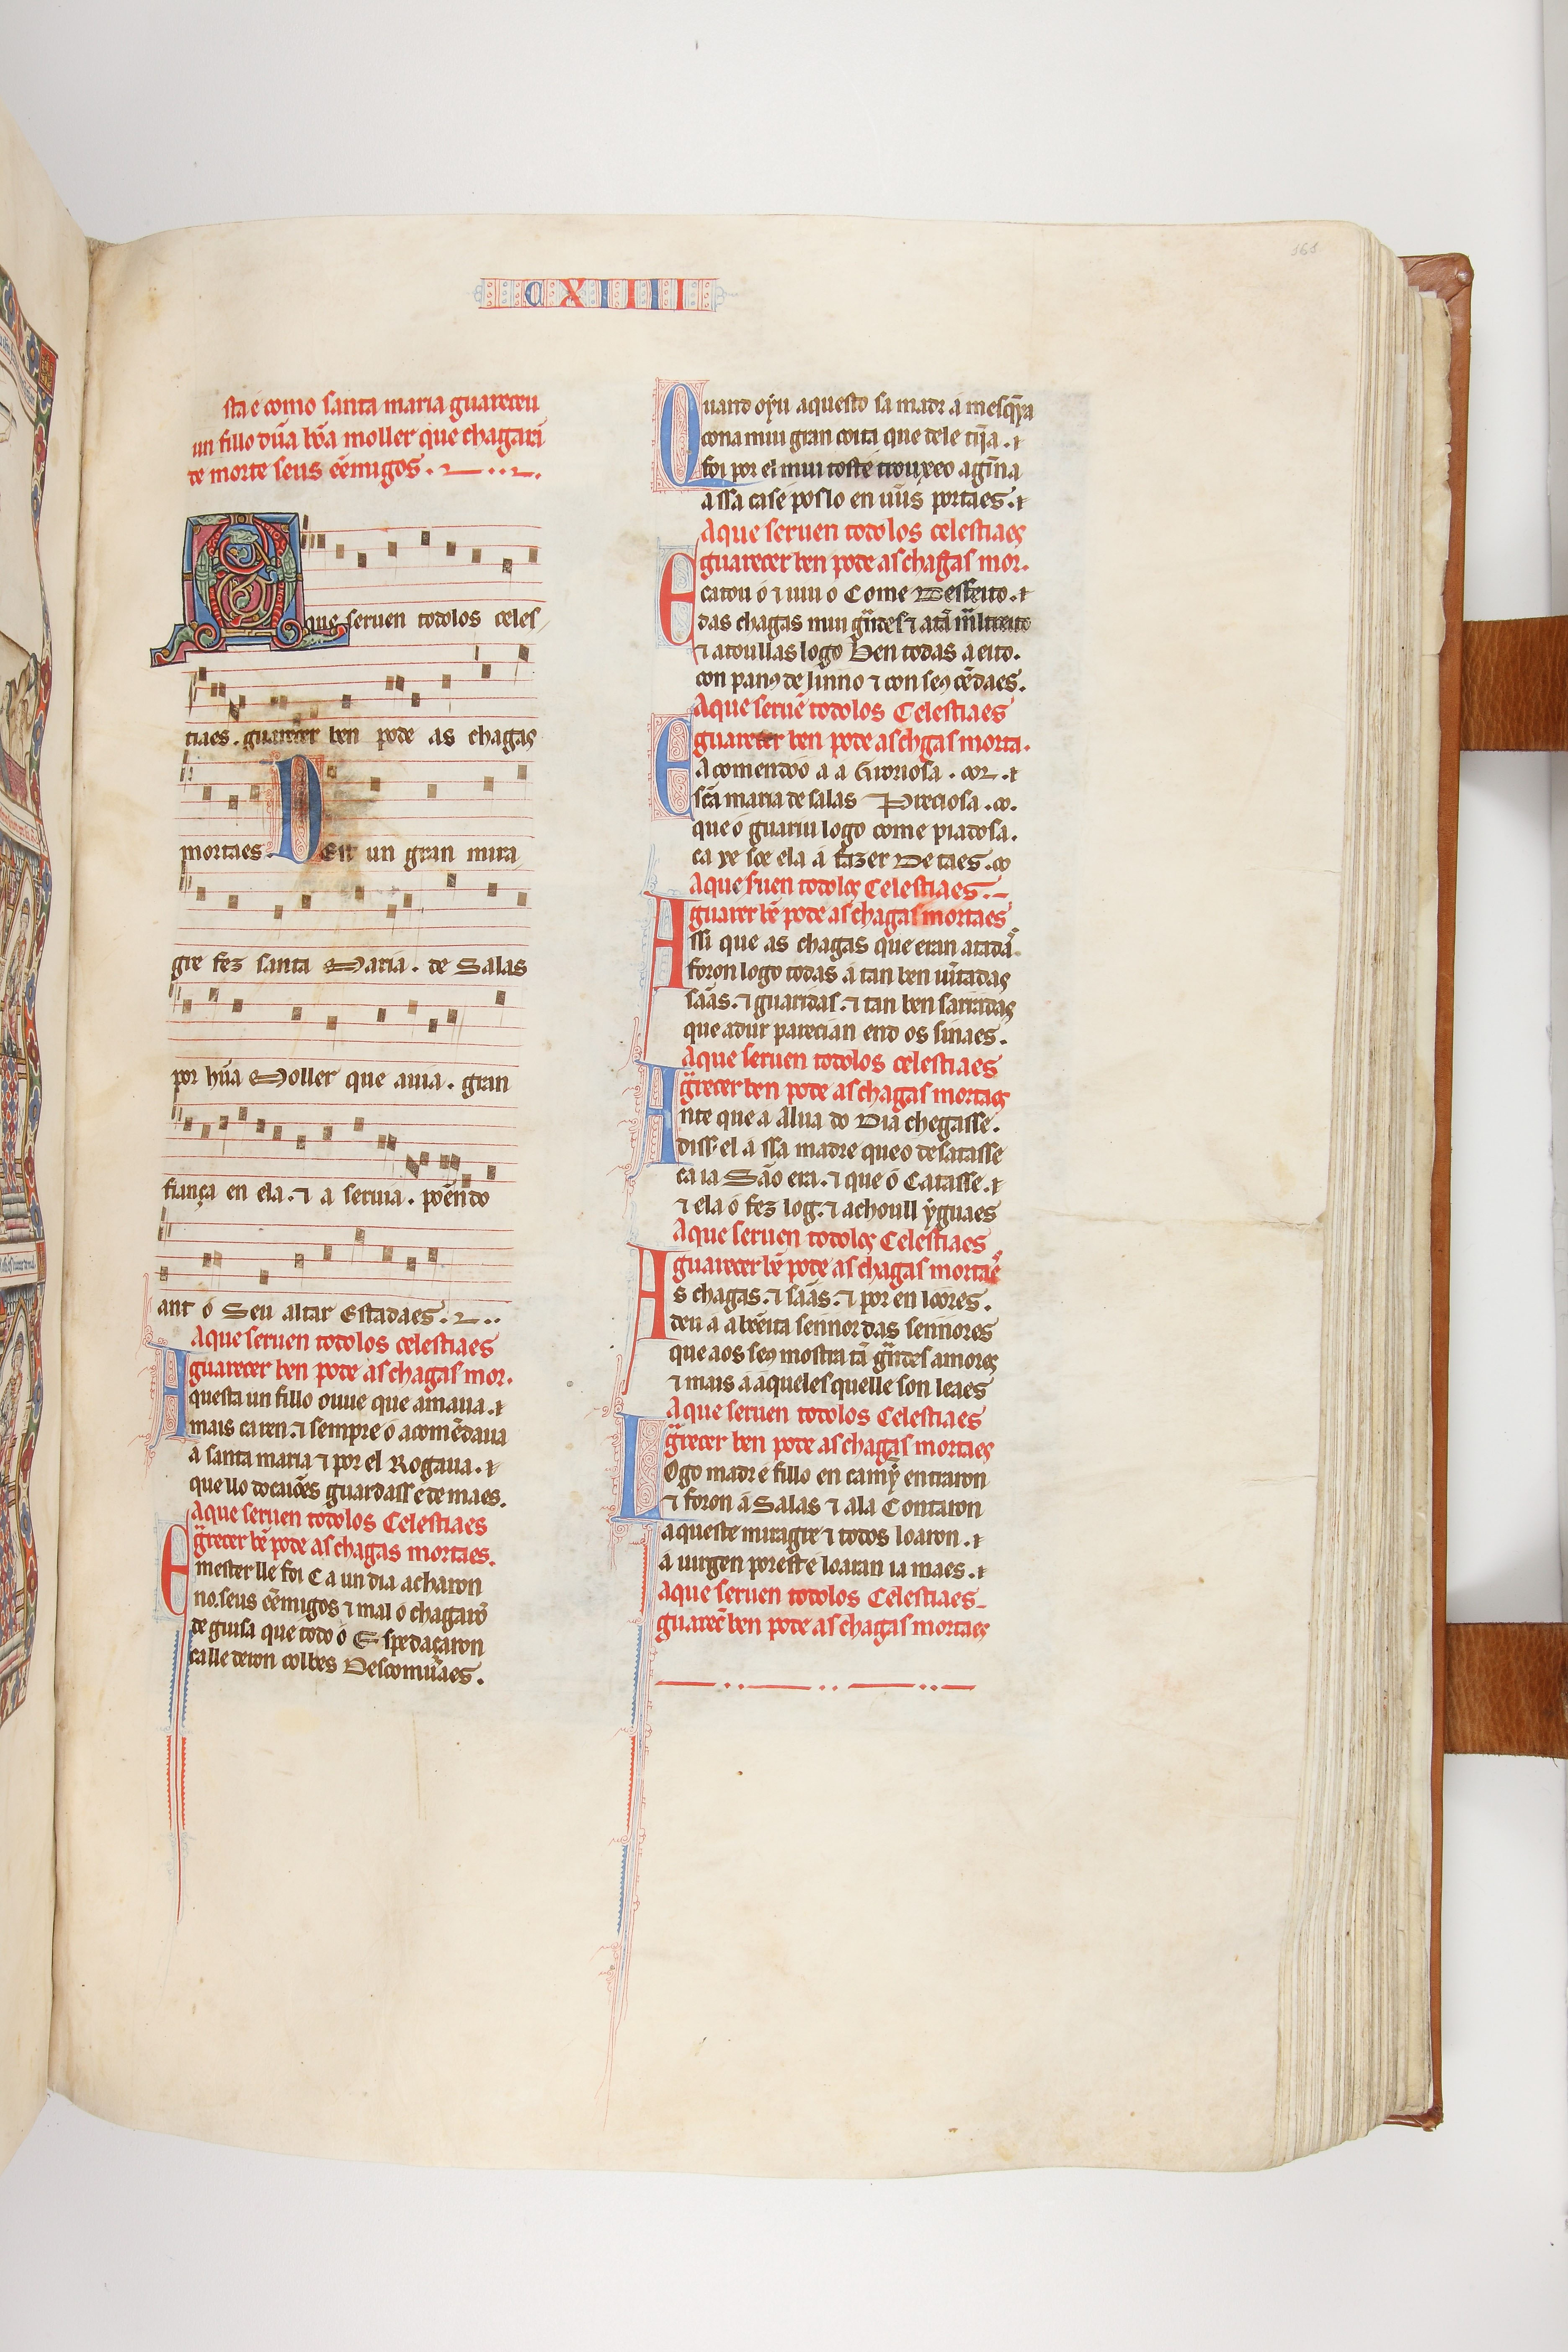 161
CXIIII
sta é como santa maria guareceu
un fillo dũa bõa moller que chagarã
de morte seus ẽemigos.
A que seruen todolos celes
tiaes. guarecer ben pode as chagas
mortaes. Dest un gran mira
gre fez santa Maria. de Salas
por hũa Moller que auia. gran
fiança en ela. ⁊ a seruia. poẽndo
ant ó Seu altar Estadaes.
A que seruen todolos celestiaes
guarecer ben pode as chagas mor.
Aquesta un fillo ouue que amaua. ⁊
mais ca ren. ⁊ sempre ó acomẽdaua
a santa maria ⁊ por el Rogaua. ⁊
que llo docaiões guardasse de maes.
A que seruen todolos Celestiaes
g̃recer bẽ pode as chagas mortaes.
E mester lle foi Ca un dia acharon
no. seus ẽemigos ⁊ mal ó chagarõ
de guisa que todo ó Espedaçaron
ca lle deron colbes Descomũaes.
Quando oyu aquesto sa madr a mesq̃ya
cona mui gran coita que dele tiĩa. ⁊
foi por el mui toste trouxeo agĩna
a ssa cas é poslo en uũs portaes. ⁊
A que seruen todolos celestiaes
guarecer ben pode as chagas mor.
E catou ó ⁊ uiu o Come Desfeito. ⁊
das chagas mui g̃ndes ⁊ atã m̃ltreito
⁊ atoullas logo Ben todas a eito.
con panos de linno ⁊ con seus cẽdaes.
A que seruẽ todolos Celestiaes
guarecer ben pode as chgas morta.
E acomendoo a a Groriosa.
sc̃a maria de salas Preciosa.
que ó guariu logo come piadosa.
ca xe soe ela á fazer De taes.
A que s̃uen todolos Celestiaes.
guarer bẽ pode as chagas mortaes
Assi que as chagas que eran atadã.
foron logo todas á tan ben iũtadas
sãas. ⁊ guaridas. ⁊ tan ben sarradas
que adur parecian end os sinaes.
A que seruen todolos celestiaes
g̃recer ben pode as chagas mortaes
Ante que a Alua do Dia chegasse.
diss el á ssa madre que o desatasse
ca ia São era. ⁊ que ó Catasse. ⁊
⁊ ela ó fez log. ⁊ achoull yguaes
A que seruen todolos Celestiaes
guarecer bẽ pode as chagas mortaẽ
As chagas. ⁊ sãas. ⁊ por en loores.
deu á a bẽeita sennor das sennores
que aos seus mostra tã g̃ndes amores
⁊ mais á aqueles quelle son leaes
A que seruen todolos Celestiaes
g̃recer ben pode as chagas mortaes
Logo madr e fillo en camỹ entraron
⁊ foron á Salas ⁊ ala Contaron
aqueste miragre ⁊ todos loaron. ⁊
a uirgen por est e loaran ia maes. ⁊
A que seruen todolos Celestiaes
guarec̃ ben pode as chagas mortaes